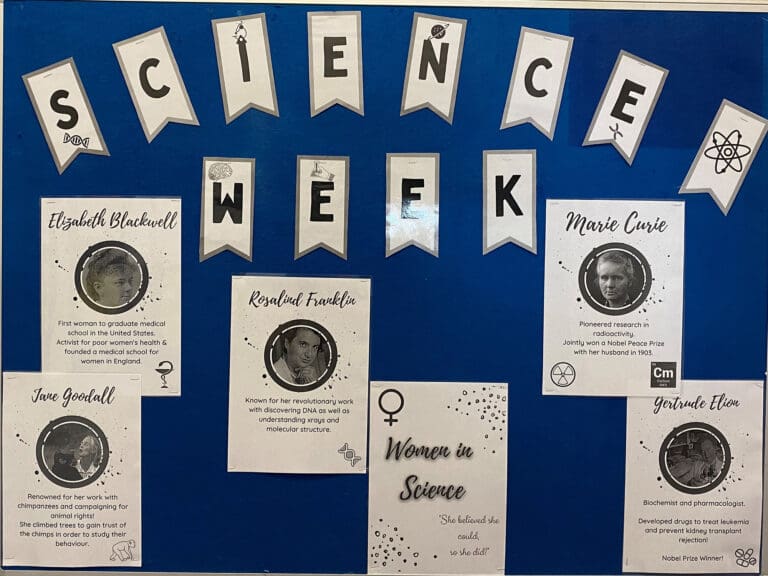 SCIENCE
WEEK
Elizabeth Blackwell
First woman to graduate medical
school in the United States.
Activist for poor women's health &
founded a medical school for
women in England.
Rosalind Franklin
Known for her revolutionary work
with discovering DNA as well as
understanding xrays and
molecular structure.
Marie Curie
Pioneered research in
radioactivity.
Jointly won a Nobel Peace Prize
with her husband in 1903.
Cm
Jane Goodall
Renowned for her work with
chimpanzees and campaigning for
animal rights!
She climbed trees to gain trust of
the chimps in order to study their
behaviour.
Women in
Science
"She believed she
could,
so she did!"
Gertrude Elion
Biochemist and pharmacologist.
Developed drugs to treat leukemia
and prevent kidney transplant
rejection!
Nobel Prize Winner!